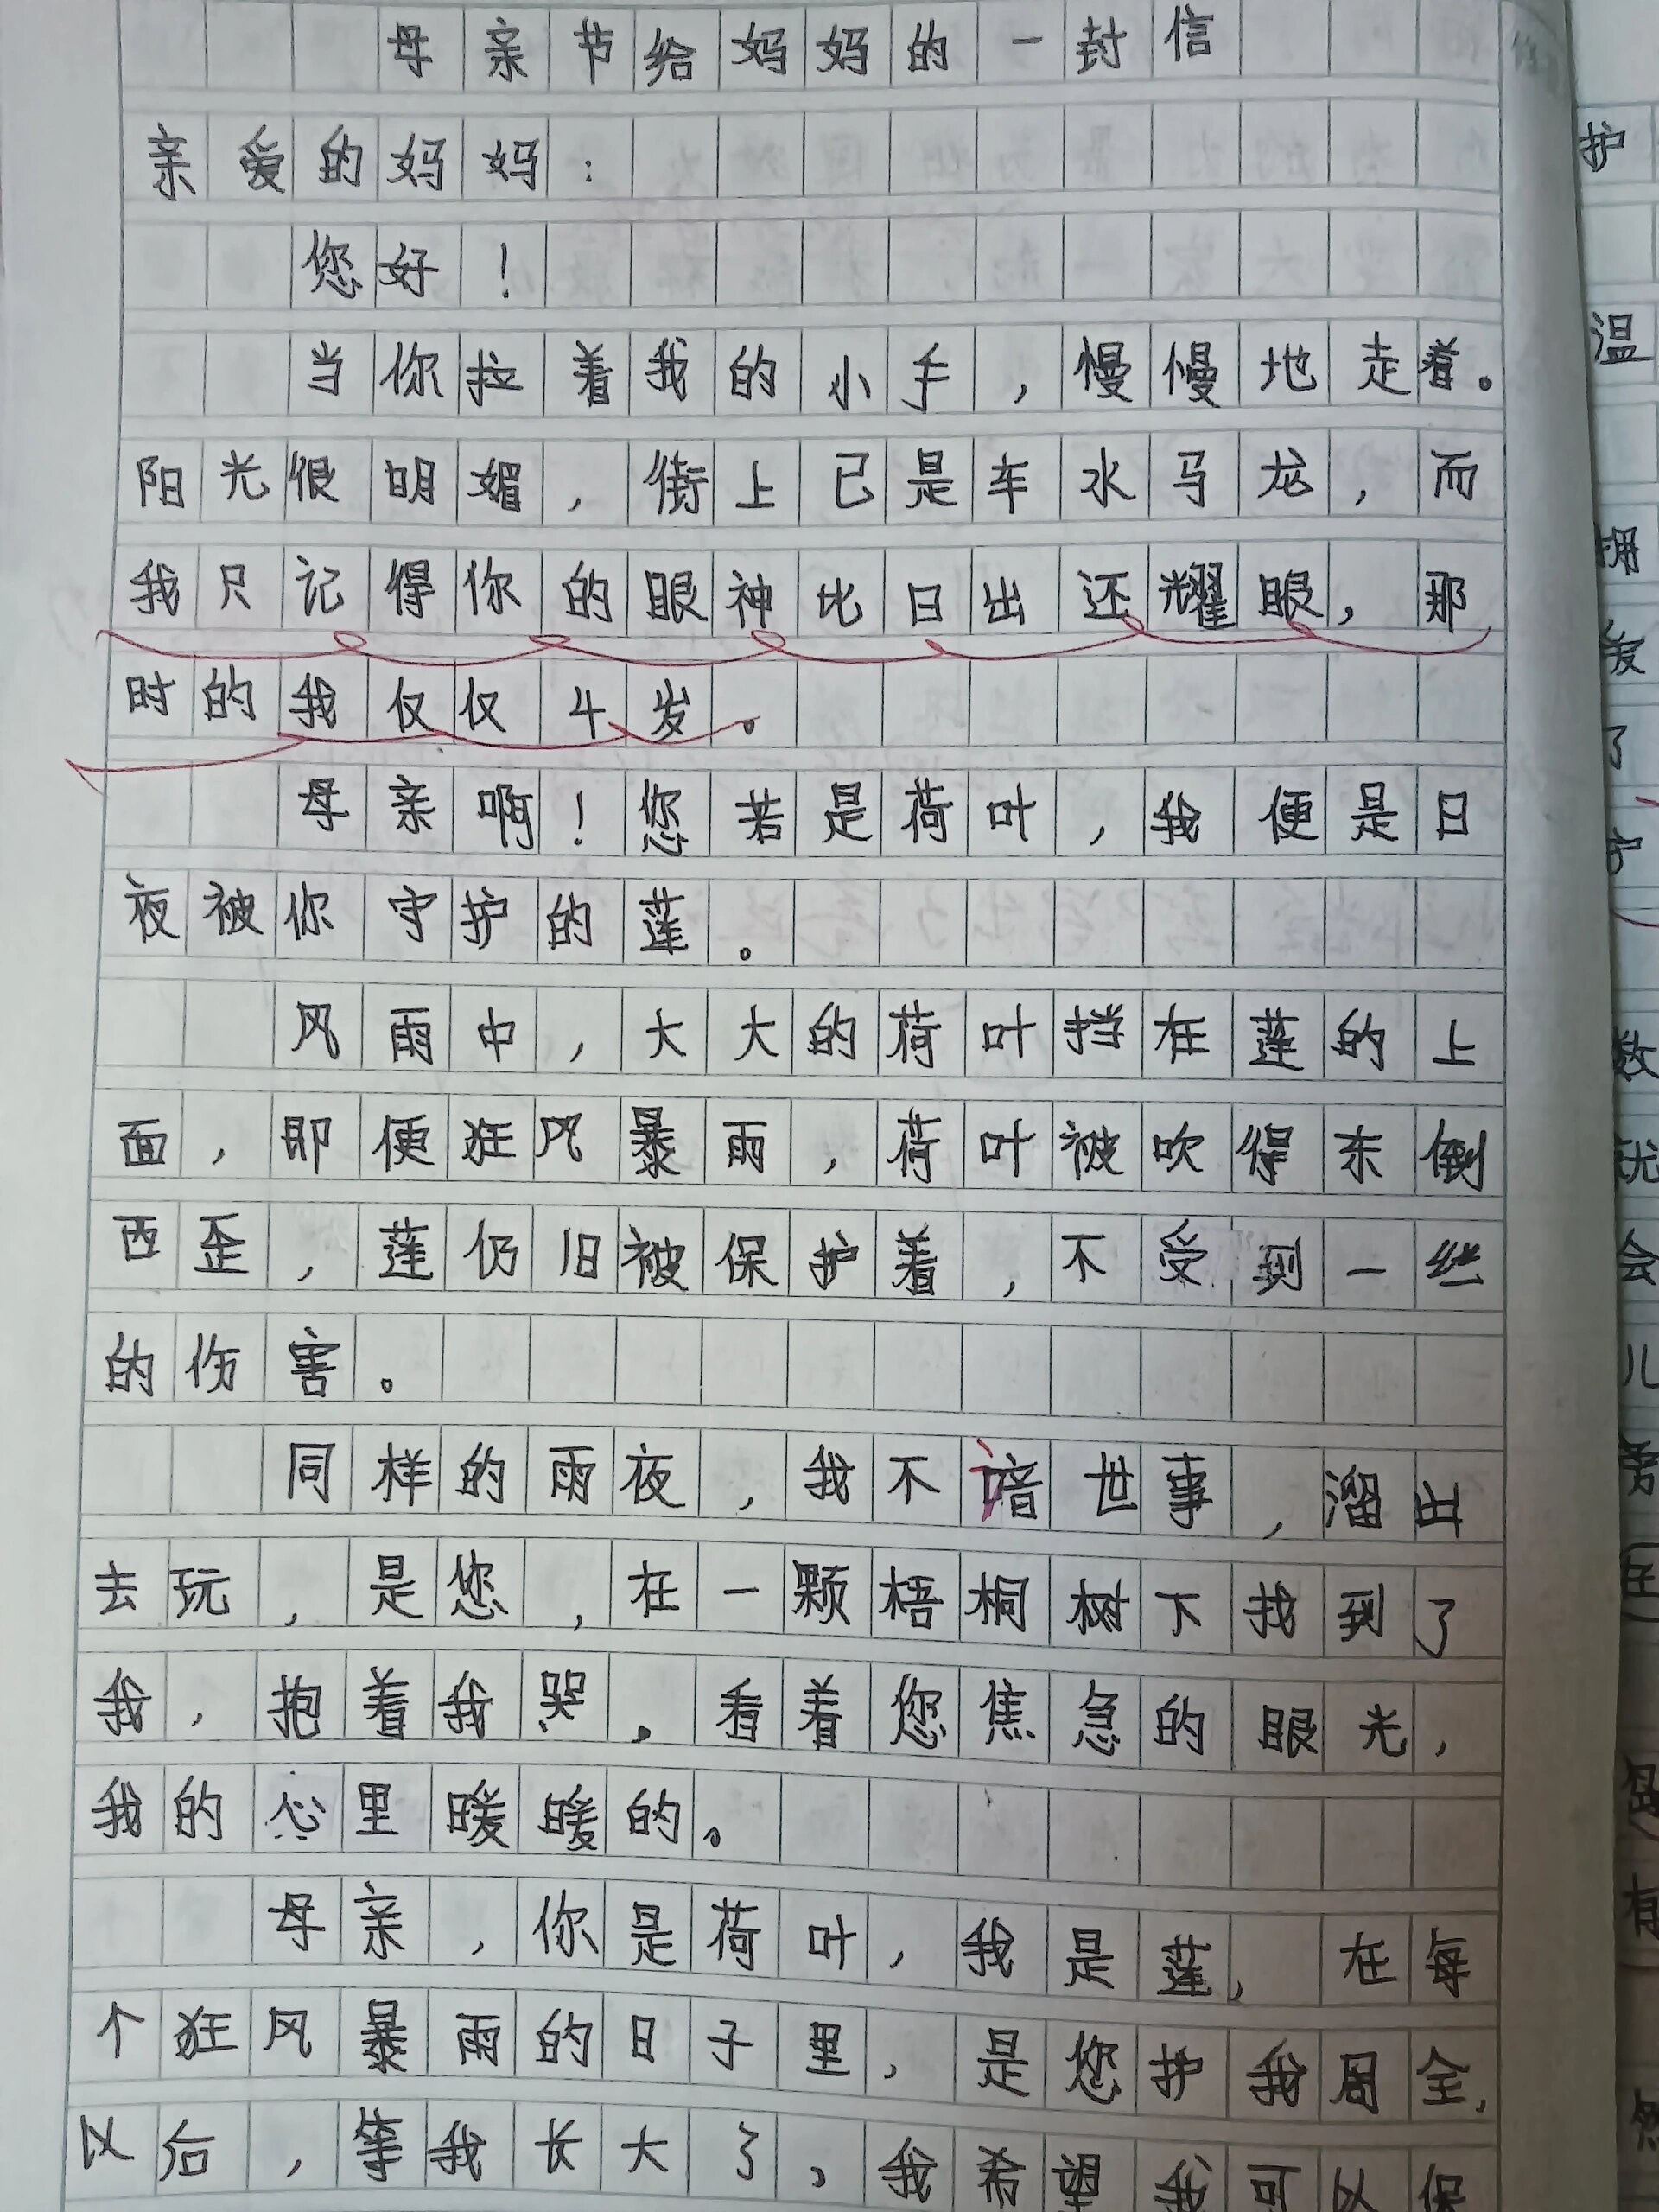 母亲节给妈妈的一封信
亲爱的妈妈：
您好！
当你拉着我的小手，慢慢地走着。
阳光很明媚，街上已是车水马龙，而
我只记得你的眼神比日出还耀眼，那
时的我仅仅4岁。
母亲啊！您若是荷叶，我便是日
夜被你守护的莲。
风雨中，大大的荷叶挡在莲的上
面，即便狂风暴雨，荷叶被吹得东倒
西歪，莲仍旧被保护着，不受到一丝
的伤害。
同样的雨夜，我不谙世事，溜出
去玩，是您，在一颗梧桐树下找到了
我，抱着我哭。看着您焦急的眼光，
我的心里暖暖的。
母亲，你是荷叶，我是莲，在每
个狂风暴雨的日子里，是您护我周全，
以后，等我长大了，我希望我可以保
护
温
拥
爱
了
数
忧
会
儿
有